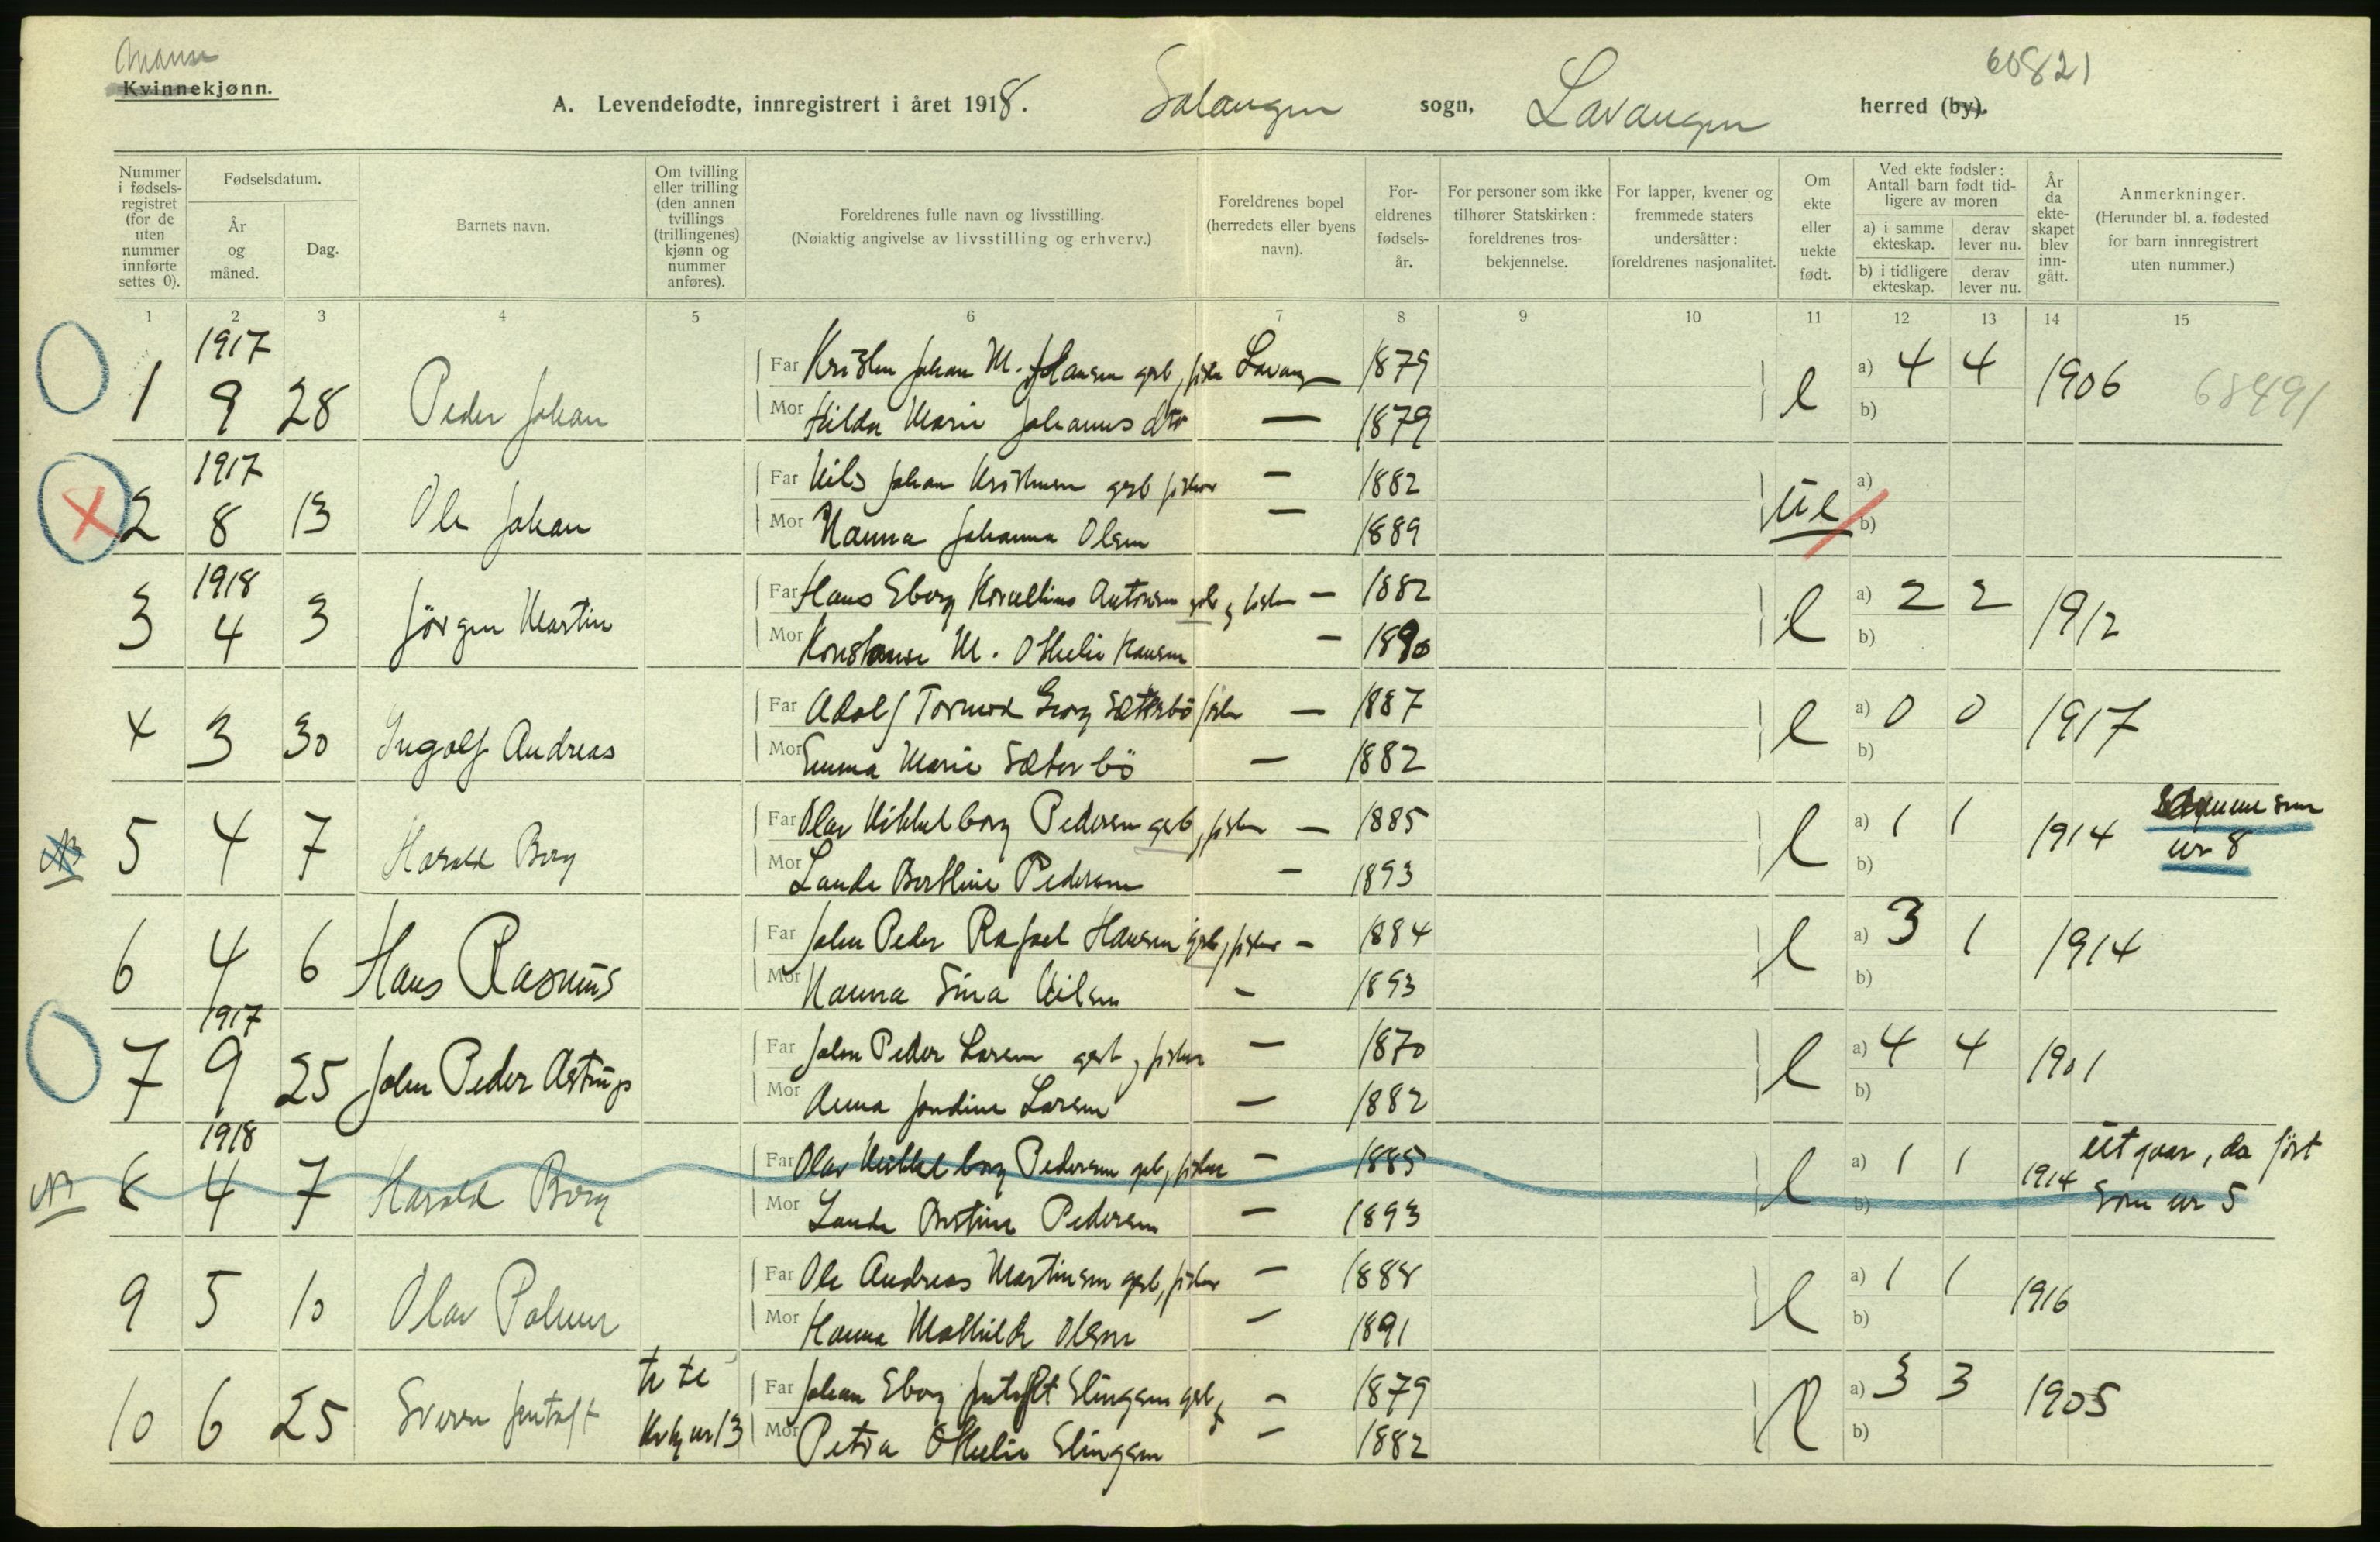 Mann
Kvinnekjønn.
60821
A. Levendefødte, innregistrert i året 1918. Salangen sogn, Lavangen herred (by).
Nummer i fødsels- registret (for de uten nummer innførte settes 0).
Fødselsdatum.
År og måned.
Dag.
Barnets navn.
Om tvilling eller trilling (den annen tvillings (trillingenes) kjønn og nummer anføres).
Foreldrenes fulle navn og livsstilling.
(Nøiaktig angivelse av livsstilling og erhverv.)
Foreldrenes bopel (herredets eller byens navn).
For- eldrenes fødsels- år.
For personer som ikke tilhører Statskirken: foreldrenes tros- bekjennelse.
For lapper, kvener og fremmede staters undersåtter: foreldrenes nasjonalitet.
Om ekte eller uekte født.
Ved ekte fødsler: Antall barn født tid- ligere av moren
a) i samme ekteskap.
derav lever nu.
b) i tidligere ekteskap.
derav lever nu.
År da ekte- skapet blev inn- gått.
Anmerkninger.
(Herunder bl. a. fødested for barn innregistrert uten nummer.)
1 2 3 4 5 6 7 8 9 10 11 12 13 14 15
1917
1 9 28 Peder Johan
Far Johan M. gsb, fisker 1879
Mor Hilda Marie Johannesdtr — 1879
e a) 4 4 b) 1906 68491
1917
2 8 13 Ole Johan
Far Nils Johan Kristensen gsb fisker — 1882
Mor Hanna Johanna Olsen — 1889
ue a) b)
1918
3 4 3 Jörgen Martin
Far Hans Eborg Kornelius Antonsen gsb, fisker — 1882
Mor M. Othelie Hansen — 1890
e a) 2 2 b) 1912
4 3 30 Ingolf Andreas
Far Adolf Tormod Georg Sæterbö fisker — 1887
Mor Emma Marie Sæterbö — 1882
e a) 0 0 b) 1917
NB 5 4 7 Harald Borg
Far Olav Mikkelborg Pedersen gsb, fisker — 1885
Mor Bertline Pedersen — 1893
e a) 1 1 b) 1914 Samme som nr 8
6 4 6 Hans Rasmus
Far John Peder Rafael Hansen gsb, fisker — 1884
Mor Hanna Sina Nilsen — 1893
e a) 3 1 b) 1914
1917
7 9 25 John Peder Astrup
Far John Peder Larsen gsb, fisker — 1870
Mor Anna Jondine Larsen — 1882
e a) 4 4 b) 1901
1918
NB 8 4 7 Harald Borg
Far Olav Mikkelborg Pedersen gsb, fisker — 1885
Mor Bertine Pedersen — 1893
e a) 1 1 b) 1914 utgaar, da fört som nr 5
9 5 10 Olav Palmer
Far Ole Andreas Martinsen gsb, fisker — 1888
Mor Hanna Mathilde Olsen — 1891
e a) 1 1 b) 1916
10 6 25 Sverre Jentoft
nr 13
Far Johan Eborg Jentoft Elingsen gsb — 1879
Mor Petra Othelie Elingsen — 1882
e a) 3 3 b) 1905